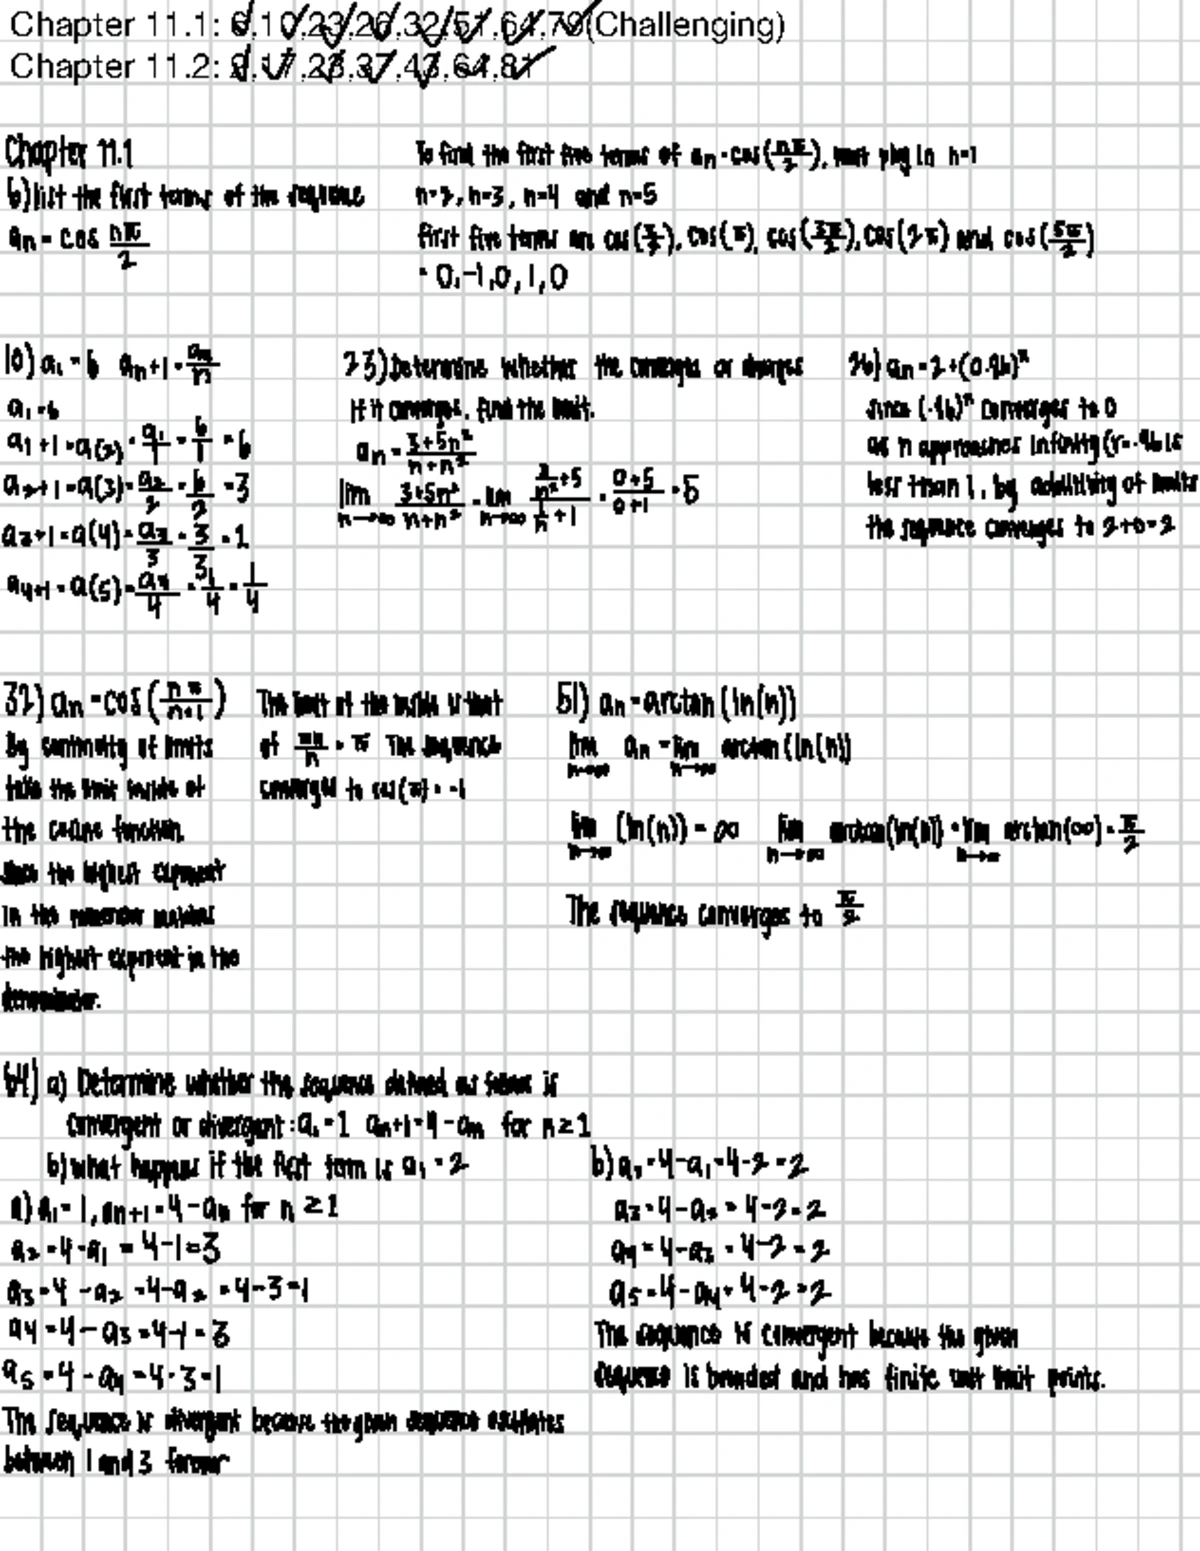 Chapter 11.1: 6,10,23,26,32,51,64,79(Challenging)
Chapter 11.2: 9,17,23,37,43,64,81
Chapter 11.1
6) list the first terms of the sequence
an = cos nπ/2
To find the first five terms of an = cos(nπ/2), must plug in n=1
n=2, n=3, n=4 and n=5
first five terms are cos(π/2), cos(π), cos(3π/2), cos(2π) and cos(5π/2)
= 0,-1,0,1,0
10) a1 = 6 an+1 = an/n
a1 = 6
a1+1 = a(2) = a1/1 = 6/1 = 6
a2+1 = a(3) = a2/2 = 6/2 = 3
a3+1 = a(4) = a3/3 = 3/3 = 1
a4+1 = a(5) = a4/4 = 1/4 = 1/4
23) Determine whether the converges or diverges
If it converges, find the limit.
an = 3+5n²/n+n²
lim n→∞ 3+5n²/n+n² = lim n→∞ 3/n²+5 / 1/n+1 = 0+5/0+1 = 5
26) an = 2+(0.86)ⁿ
since (.86)ⁿ converges to 0
as n approaches infinity (r=.86 is
less than 1, by additivity of limits
the sequence converges to 2+0=2
32) an = cos(nπ/n+1)
By continuity of limits
take the limit inside of
the cosine function.
Since the highest exponent
in the numerator matches
the highest exponent in the
denominator.
The limit of the inside is that
of πn/n = π The sequence
converges to cos(π) = -1
51) an = arctan(ln(n))
lim n→∞ an = lim n→∞ arctan(ln(n))
lim n→∞ (ln(n)) = ∞ lim n→∞ arctan(ln(n)) = lim n→∞ arctan(∞) = π/2
The sequence converges to π/2
64) a) Determine whether the sequence defined as follows is
convergent or divergent: a1 = 1 an+1 = 4-an for n≥1
b) what happens if the first term is a1 = 2
a) a1 = 1, an+1 = 4-an for n ≥1
a2 = 4-a1 = 4-1=3
a3 = 4 - a2 = 4-a2 = 4-3=1
a4 = 4 - a3 = 4-1 = 3
a5 = 4 - a4 = 4-3=1
The sequence is divergent because the given sequence oscillates
between 1 and 3 forever
b) a2 = 4-a1 = 4-2 = 2
a3 = 4-a2 = 4-2 = 2
a4 = 4-a3 = 4-2 = 2
a5 = 4-a4 = 4-2 = 2
The sequence is convergent because the given
sequence is bounded and has finite limit points.